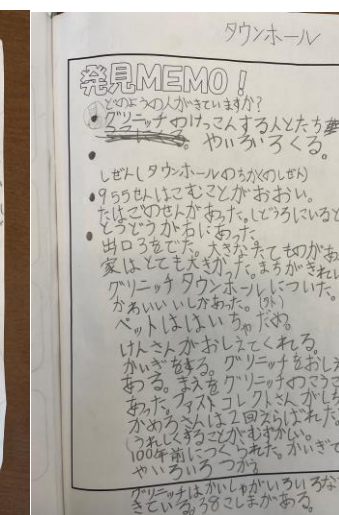 タウンホール
発見MEMO!
どのような人がきていますか?
グリニッチのけっこんする人とたち
やいろいろくる。
しぜんしタウンホールのちかくのしぜん)
955せんはこむことがおおい。
たばこのせんがあった。しどうろにいると
とうどうが右にあった
出口3をでた。大きなたてものがあ
家はとても大きかった。まちがきれい
グリニッチタウンホールについた。
かわいいいしがあった。(外)
ペットははいちゃだめ。
けんさんがおしえてくれる。
かいぎをする。グリニッチをおしえ
ある。まえをグリニッチのこうこう
あった。ファストコレクトさんがしち
かめろさんは2回えらばれた。
(うれしくすることがむずかしい。
100年前につくられた。かいぎで
やいろいろつかう
グリニッチはかいしゃがいろいろな
きている。38こしまがある。